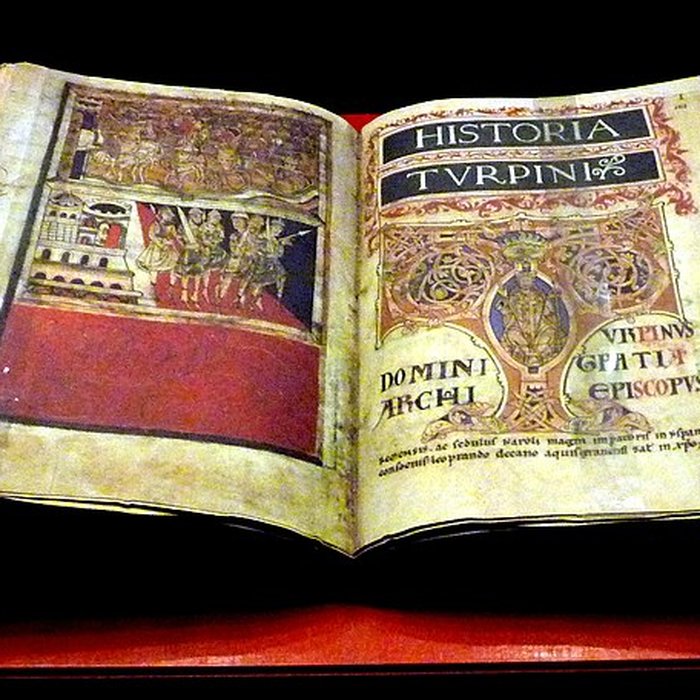 HISTORIA
TVRPINI
VRPINVS
DOMINI GRATIA
ARCHI EPISCOPVS
REMENSIS. ac sedulus Karoli magni imperatoris in yspan
consocius leoprando decano aquisgranensi sal in xpo